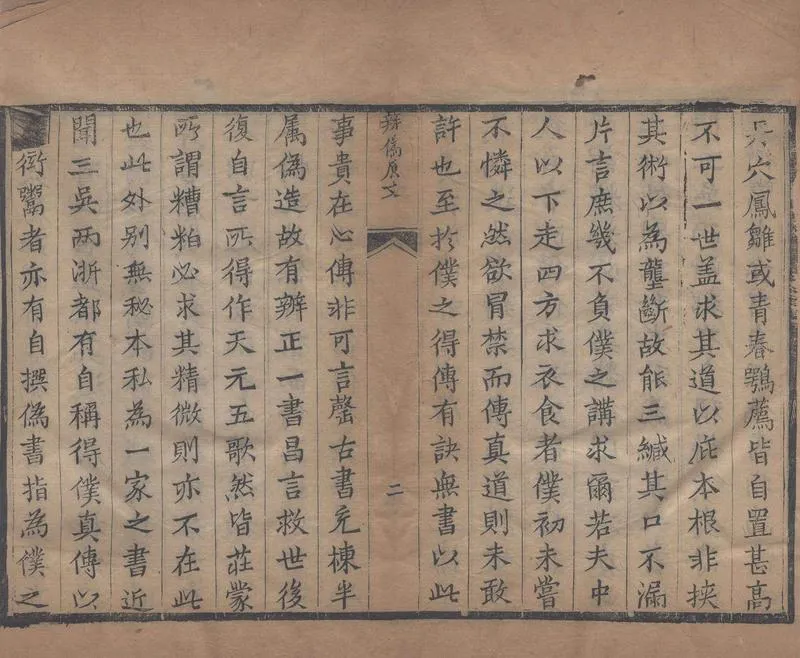 穴鳳雛或青春鶚薦皆自置甚高
不可一世盖求其道以庇本根非挾
其術以為壟斷故能三緘其口不漏
片言庶幾不負僕之講求爾若夫中
人以下走四方求衣食者僕初未嘗
不憐之然欲冒禁而傳真道則未敢
許也至於僕之得傳有訣無書以此
辨偽原文
二
事貴在心傳非可言罄古書充棟半
属偽造故有辨正一書昌言救世後
復自言所得作天元五歌然皆莊蒙
所謂糟粕必求其精微則亦不在此
也此外别無秘本私為一家之書近
聞三吳两浙都有自稱得僕真傳以
衒鬻者亦有自撰偽書指為僕之